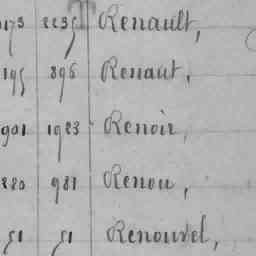 173 2235 Renault,
195 896 Renaut,
901 1923 Renoir,
280 981 Renou,
51 51 Renouvel,